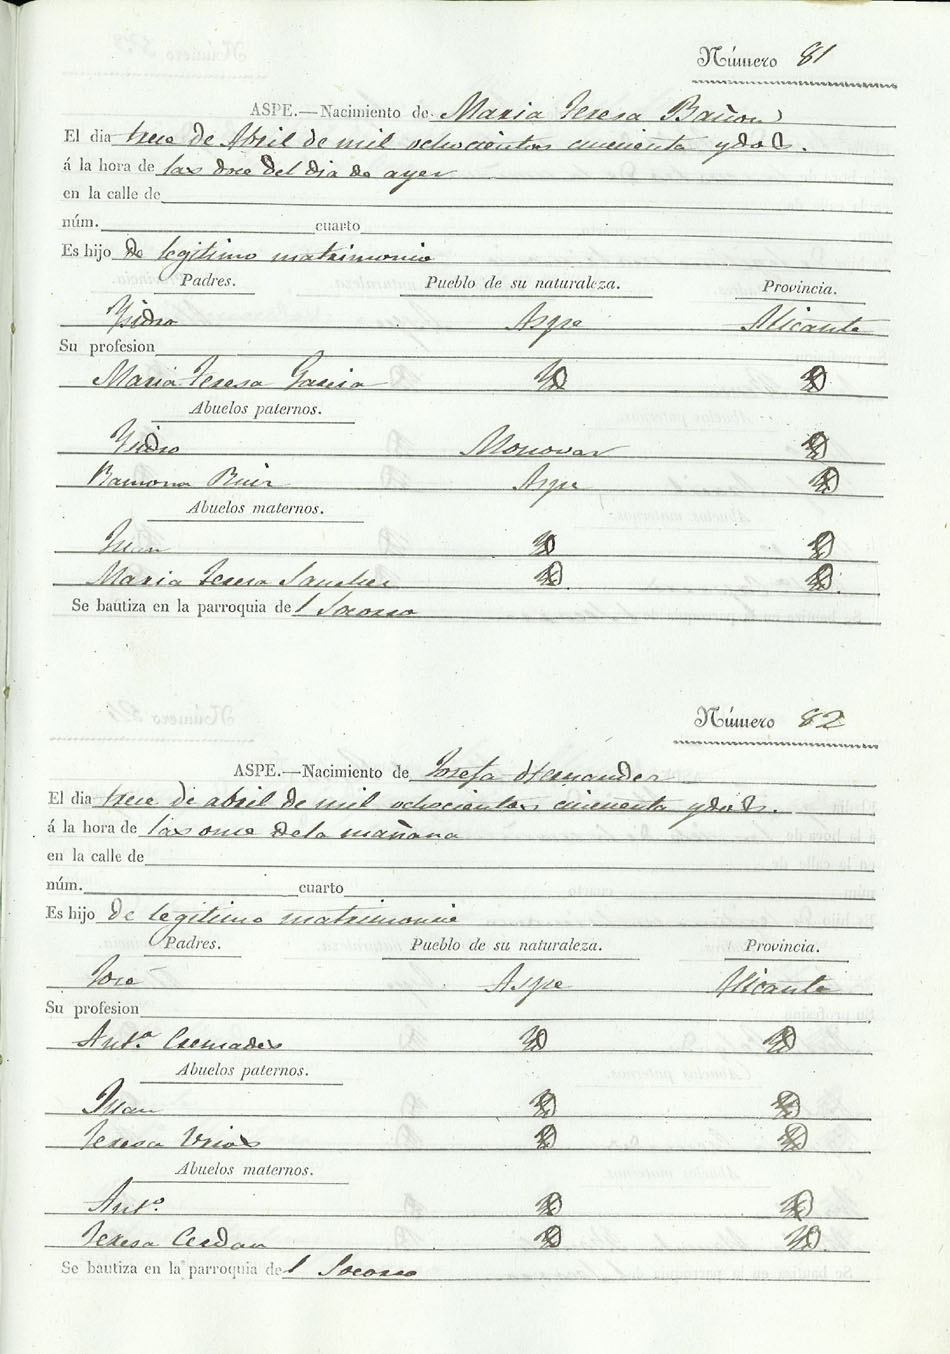 Número 81
ASPE.—Nacimiento de Maria Teresa Bañon
El dia trece de Abril de mil ochocientos cincuenta y dos.
á la hora de las doce del dia de ayer
en la calle de
núm. cuarto
Es hijo de legitimo matrimonio
Padres. Pueblo de su naturaleza. Provincia.
Ysidro Aspe Alicante
Su profesion
Maria Teresa Garcia Yd Yd
Abuelos paternos.
Ysidro Monovar Yd
Ramona Ruiz Aspe Yd
Abuelos maternos.
Juan Yd Yd
Maria Teresa Sanchez Yd Yd.
Se bautiza en la parroquia del Socorro
Número 82
ASPE.—Nacimiento de Josefa Hernandez
El dia trece de abril de mil ochocientos cincuenta y dos.
á la hora de las once de la mañana
en la calle de
núm. cuarto
Es hijo de legitimo matrimonio
Padres. Pueblo de su naturaleza. Provincia.
José Aspe Alicante
Su profesion
Ant.ª Cremades Yd Yd
Abuelos paternos.
Juan Yd Yd
Teresa Urios Yd Yd
Abuelos maternos.
Ant.º Yd Yd
Teresa Cerdan Yd Yd.
Se bautiza en la parroquia del Socorro